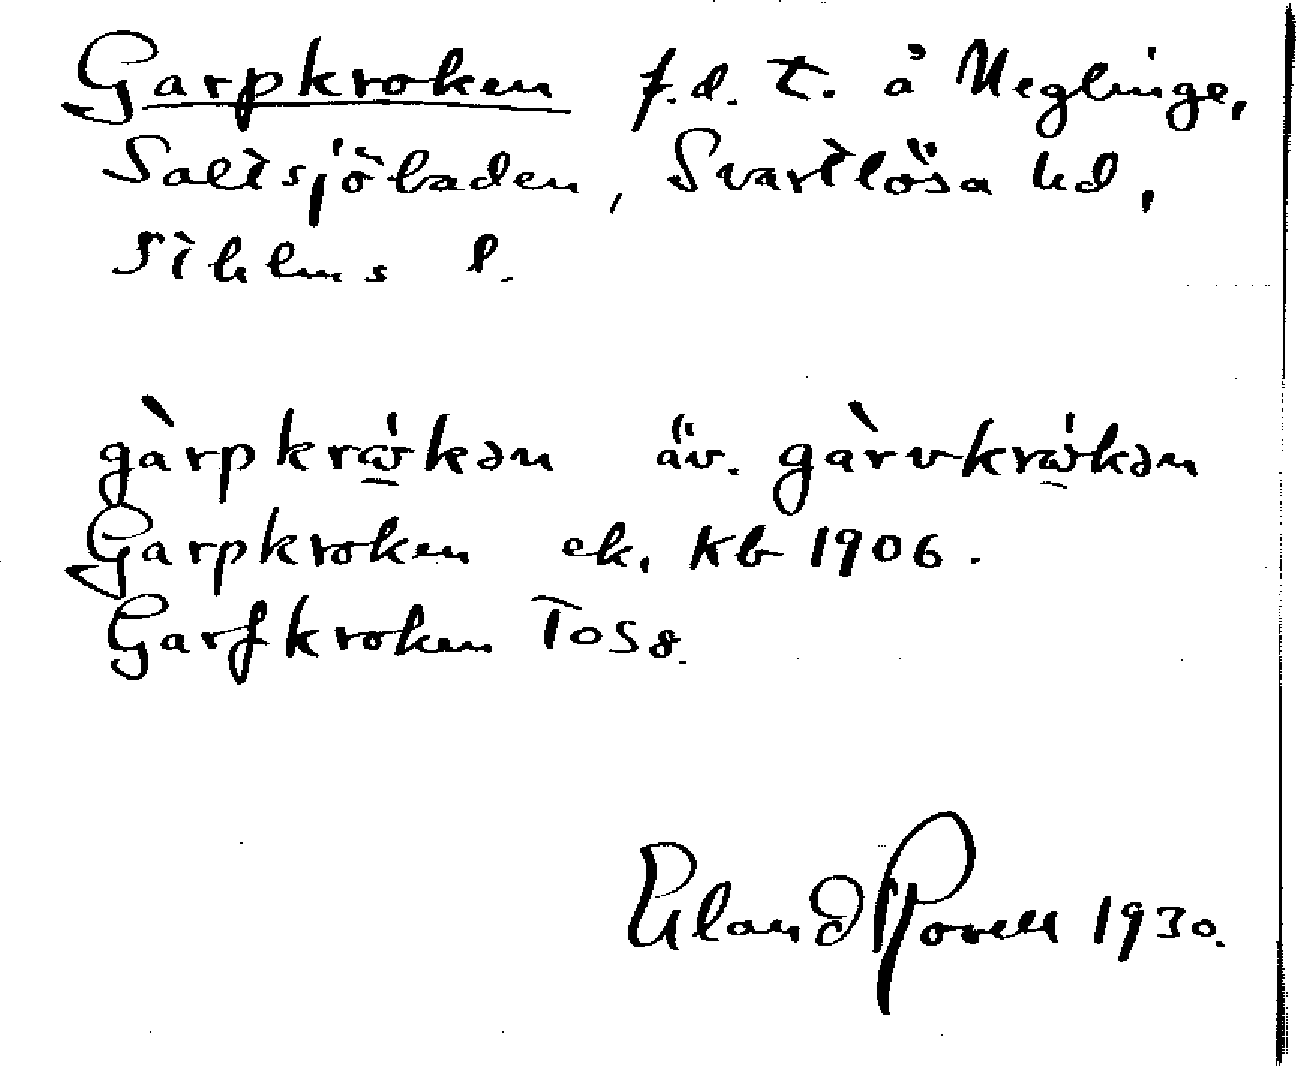 Garpkroken f.d. t. å Neglinge,
Saltsjöbaden, Svartlösa hd,
Sthlms l.
gàrpkrω̇̀kən äv. gàrvkrω̇̀kən
Garpkroken ek. Kb 1906.
Garfkroken TOS8.
Erland Rosell 1930.